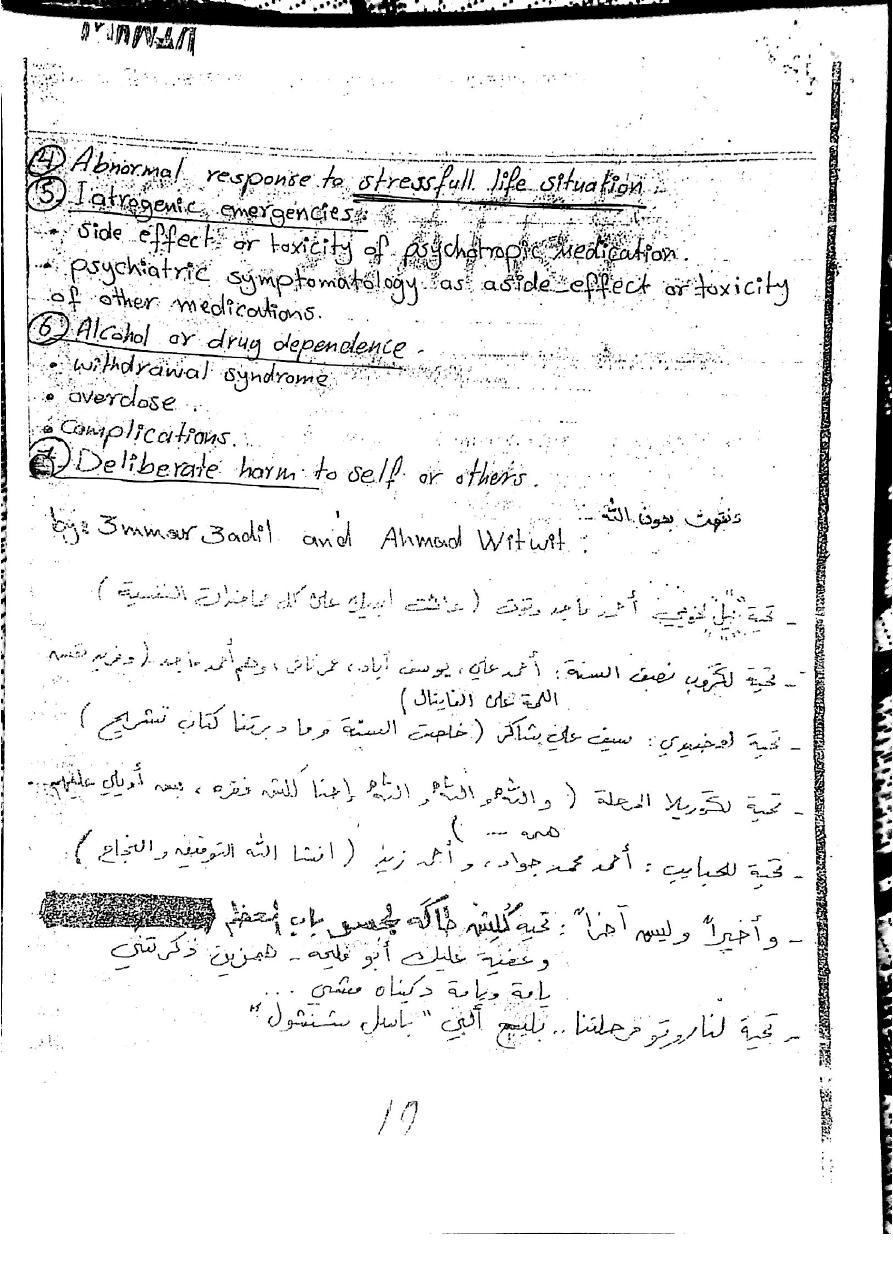 ④ Abnormal response to stressfull life situation.
⑤ Iatrogenic emergencies:
• side effect or toxicity of psychotropic medication.
• psychiatric symptomatology as aside effect or toxicity
of other medications.
⑥ Alcohol or drug dependence.
• withdrawal syndrome
• overdose.
• Complications.
⑦ Deliberate harm to self or others.
انتهت بعون الله
by: 3mmar 3adil and Ahmad Witwit:
- تحية أحمد ماجد وتوت (عاشت ايديك على كل محاضرات النفسية)
- تحية لكروب نصف السنة: أحمد علي، يوسف آياد، عمر، وهم أحمد ماجد (
اللمة على الفاينال)
- تحية: سيف علي شاكر (خلصت السنة وما دبرتنا كتاب تشريح)
- تحية لكوريلا المرحلة (والله والله والله إحنا كلش فقره، بس
همه ... )
- تحية للحبايب: أحمد محمد جواد، وأحمد زيد (انشا الله التوفيق والنجاح)
- وأخيراً وليس آخراً: تحية كلش باب المعظم
وعفية عليك أبو ذكرتني
يامة ويامة
- تحية لناروتو مرحلتنا.. "باسل شنشول"
17